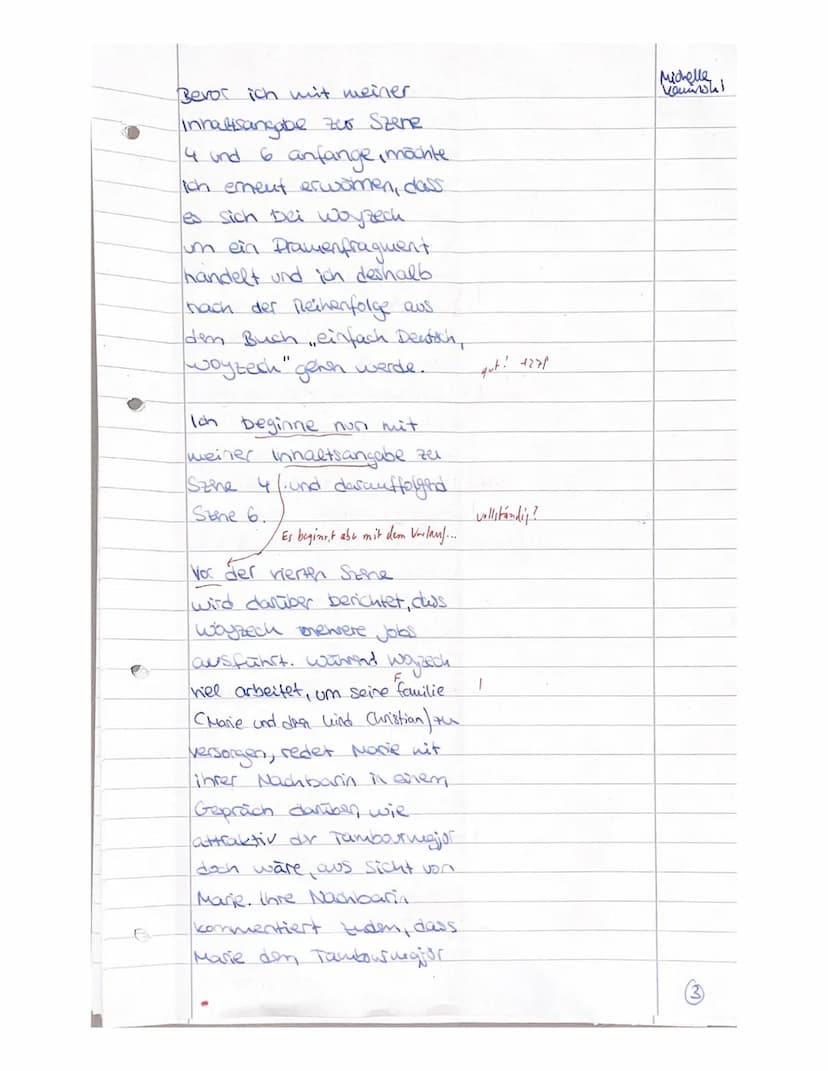 Michelle
Bevor ich mit meiner
Inhaltsangabe zur Szene
4 und 6 anfange, möchte
ich erneut erwähnen, dass
es sich bei Woyzeck
um ein Dramenfragment
handelt und ich deshalb
nach der Reihenfolge aus
dem Buch „einfach Deutsch,
Woyzeck" gehen werde.
gut!
Ich beginne nun mit
meiner Inhaltsangabe zu
Szene 4 und darauffolgend
Szene 6.
vollständig?
Es beginnt aber mit dem Vorlauf...
Vor der vierten Szene
wird darüber berichtet, dass
Woyzeck mehrere Jobs
ausführt. Während Woyzeck
viel arbeitet, um seine familie
F
(Marie und den Kind Christian) zu
versorgen, redet Marie mit
ihrer Nachbarin in einem
Gepräch darüber, wie
attraktiv dr Tambourmajor
doch wäre, aus Sicht von
Marie. Ihre Nachbarin
kommentiert zudem, dass
Marie den Tambourmajor
3